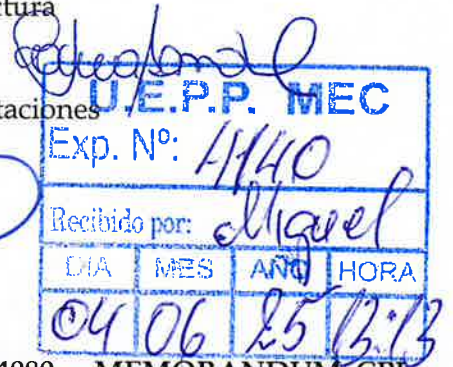 ctura
taciones
U.E.P.P. MEC
Exp. Nº: 4140
Recibido por: Miguel
DIA MES AÑO HORA
04 06 25 13:13
MEMORANDUM